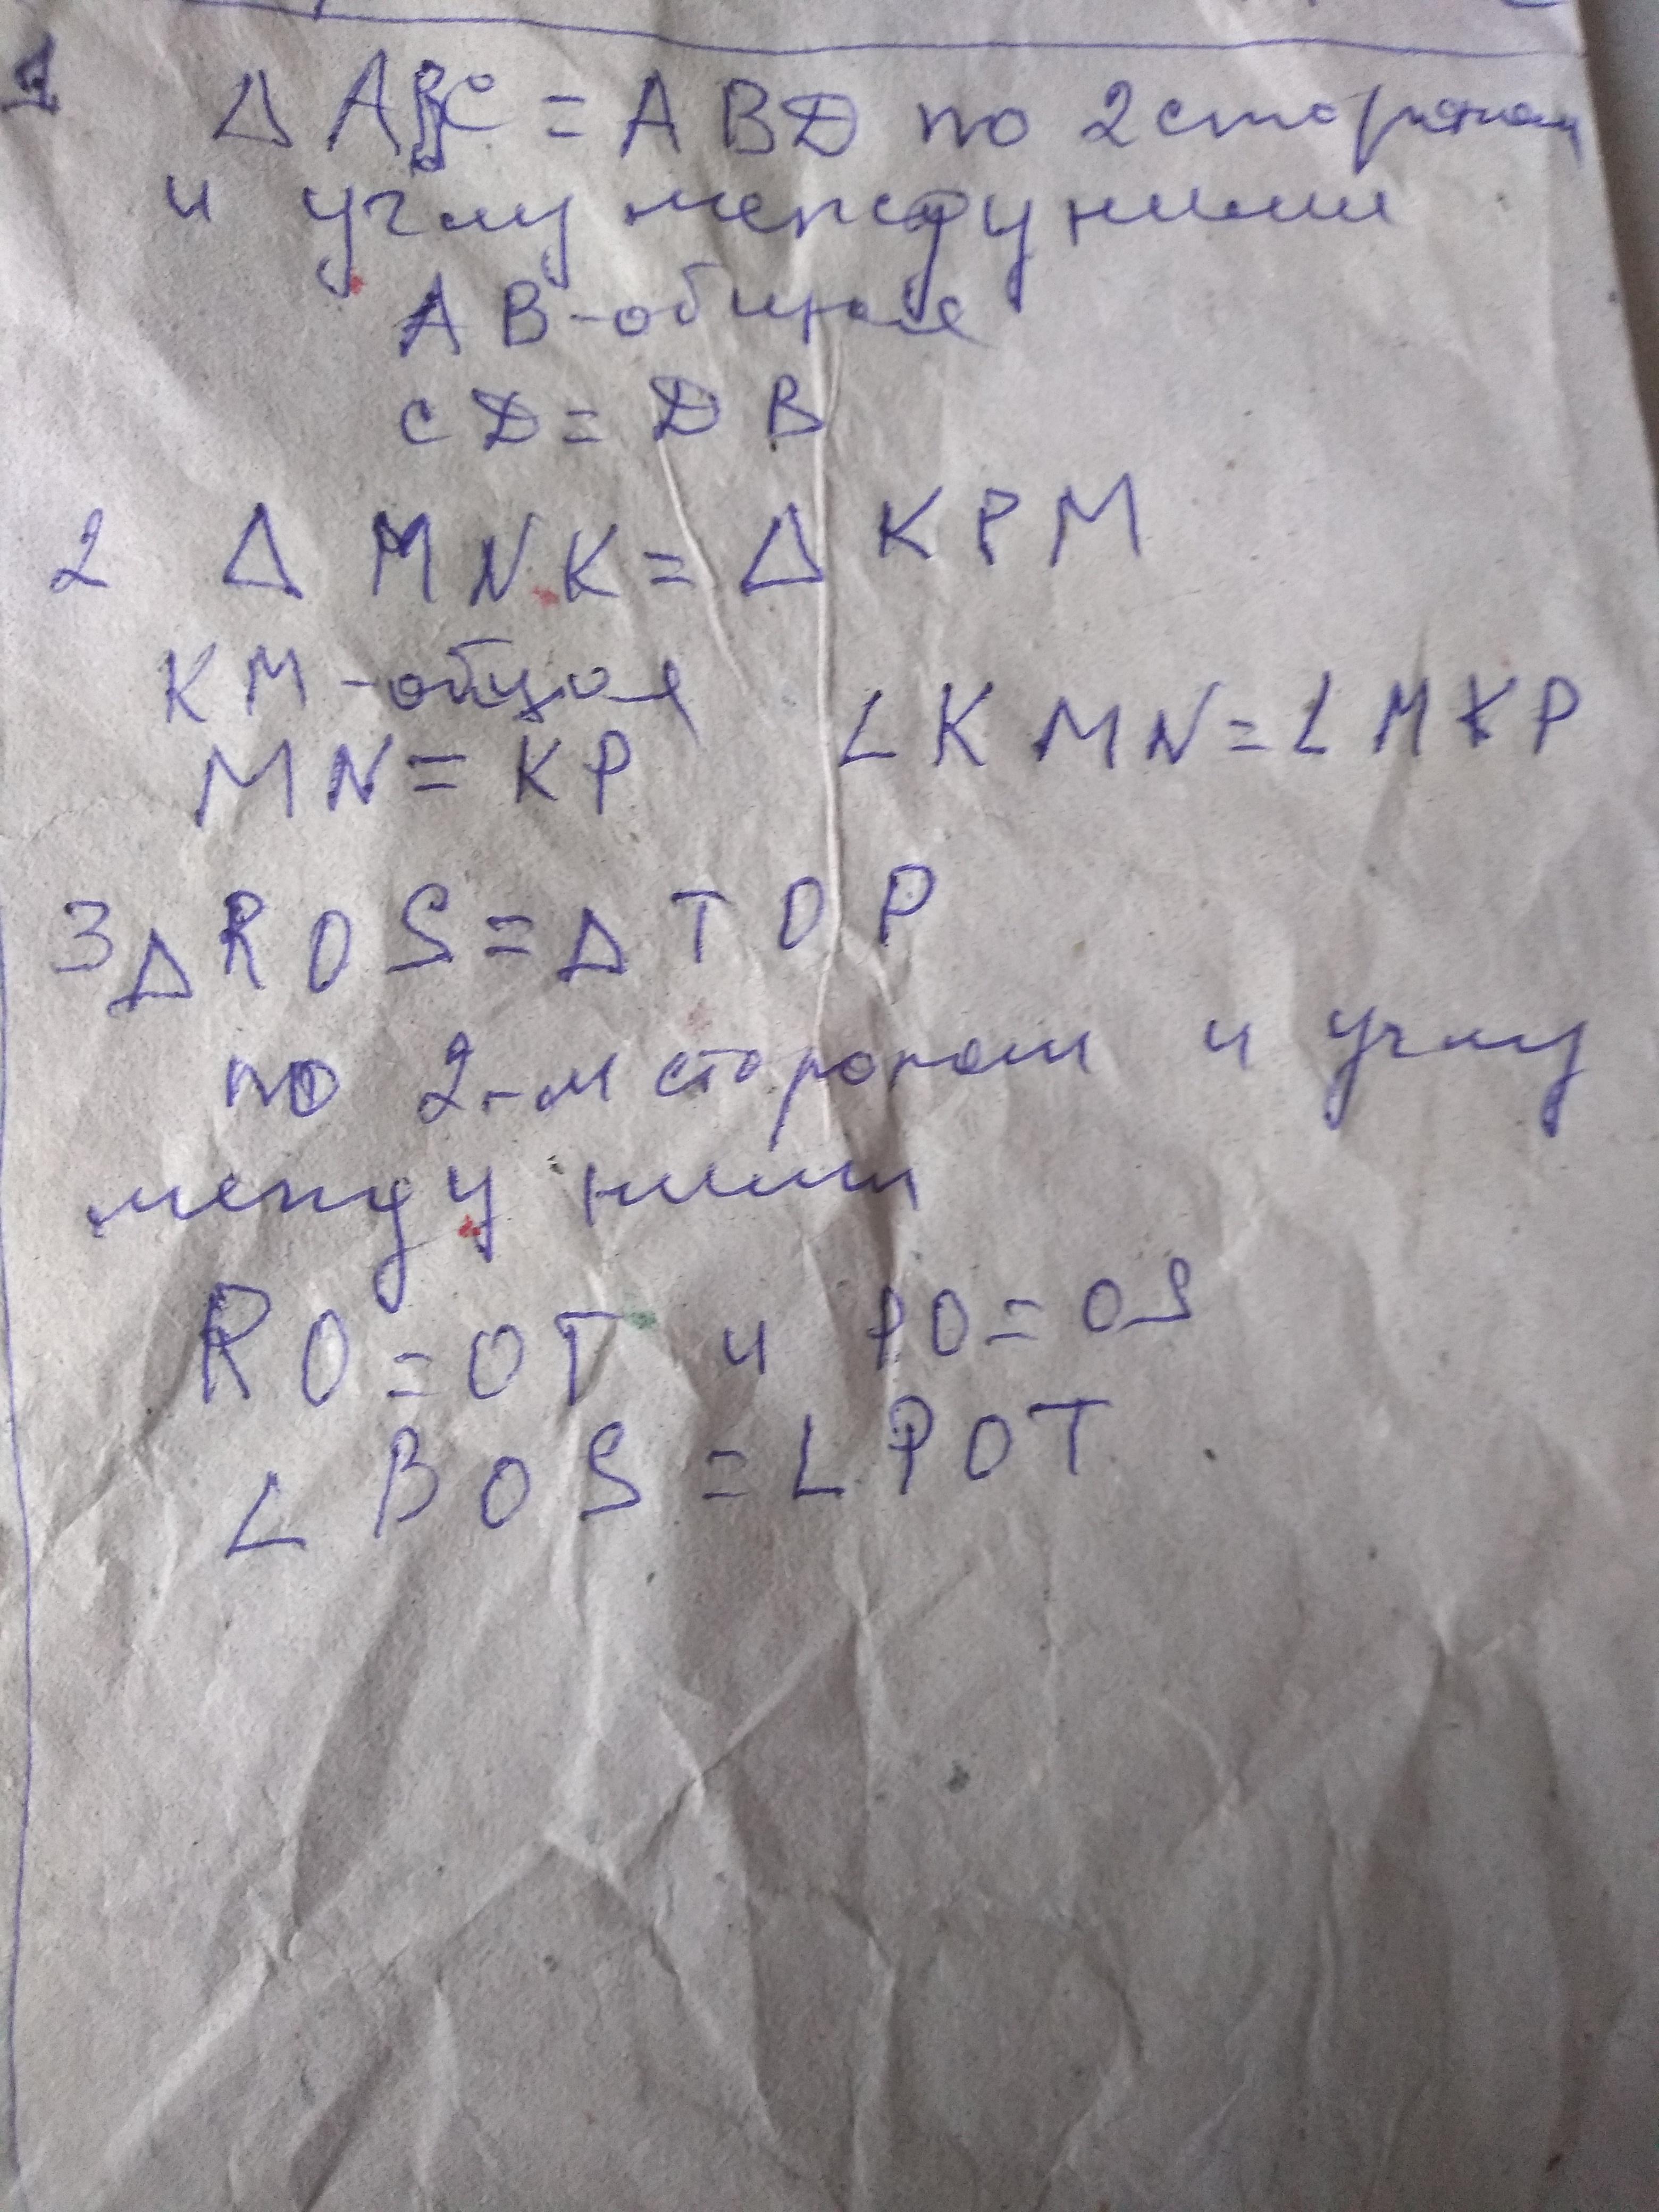 1 Δ ABC = ABD по 2 сторонам
и углу между ними
AB - общая
CD = DB
2 Δ MNK = Δ KPM
KM - общая
∠KMN = ∠MKP
MN = KP
3 Δ ROS = Δ TOP
по 2-м сторонам и углу
между ними
RO = OT и PO = OS
∠ BOS = ∠ POT